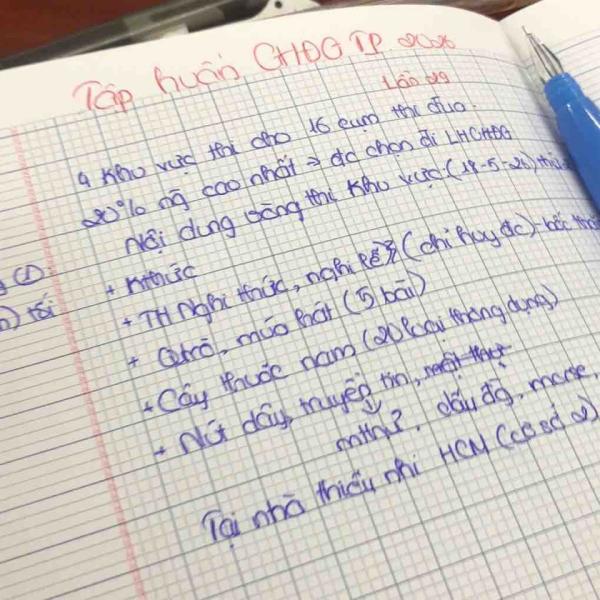 Tập huấn CHĐG TP 2026
Lần 29
4 khu vực thi cho 16 cụm thi đua.
20% ng cao nhất → đc chọn đi LHCHĐG
Nội dung bảng thi khu vực (18-5-26)
+ Kthức
+ TH Nghi thức, nghi lễ (chỉ huy đc) - bốc
+ Qtrò, múa hát (5 bài)
+ Cây thuốc nam (20 loại thông dụng)
+ Nút dây, truyền tin, mật thư
mthư?, dấu đg, morse,
Tại nhà thiếu nhi HCM (cơ sở 2)
(1):
tối